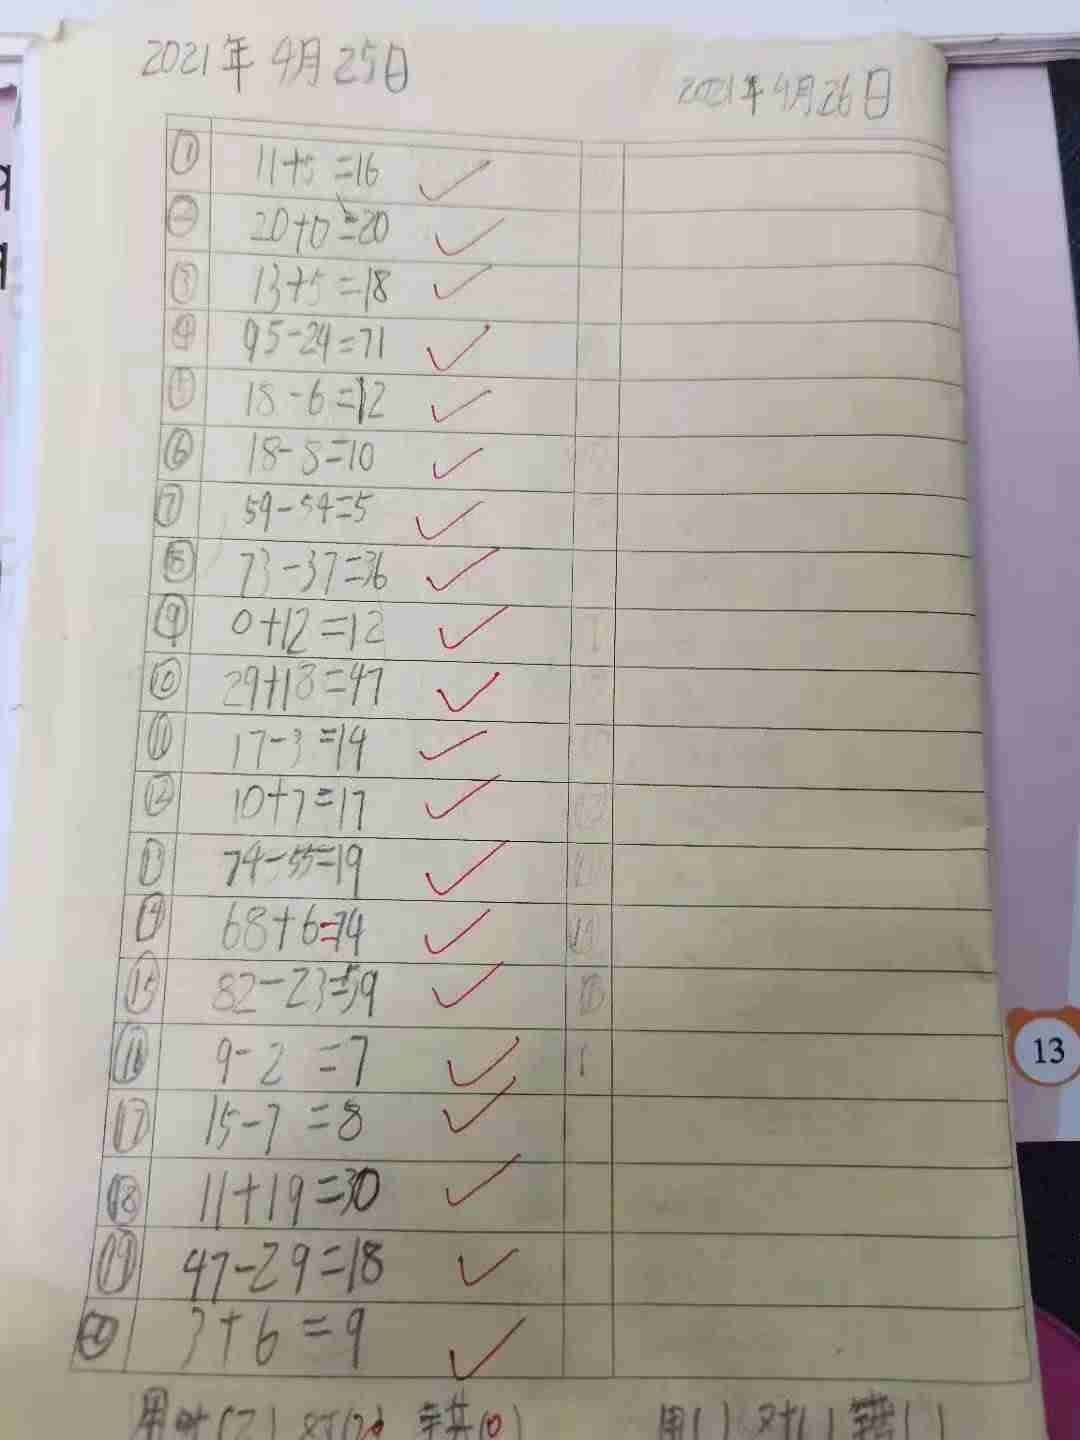 2021年4月25日
2021年4月26日
① 11+5=16
② 20+0=20
③ 13+5=18
④ 95-24=71
⑤ 18-6=12
⑥ 18-8=10
⑦ 59-54=5
⑧ 73-37=36
⑨ 0+12=12
⑩ 29+18=47
⑪ 17-3=14
⑫ 10+7=17
⑬ 74-55=19
⑭ 68+6=74
⑮ 82-23=59
⑯ 9-2=7
⑰ 15-7=8
⑱ 11+19=30
⑲ 47-29=18
⑳ 3+6=9
用时(2) 对(20) 错(0)
用( ) 对( ) 错( )
13